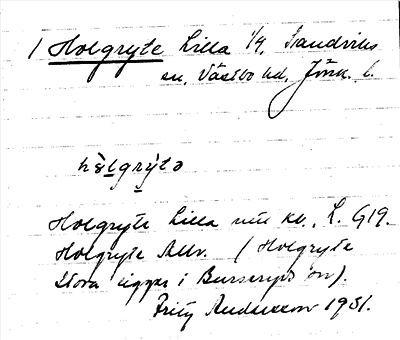 / Holgryte Lilla 1/4, Sandviks
sn, Västbo hd, Jönk. l.
hòlgrýtə
Holgryte Lilla kb., L. G19.
Holgryte Allm. (Holgryte
Stora ligger i Burseryds sn).
Fritz Andersson 1931.